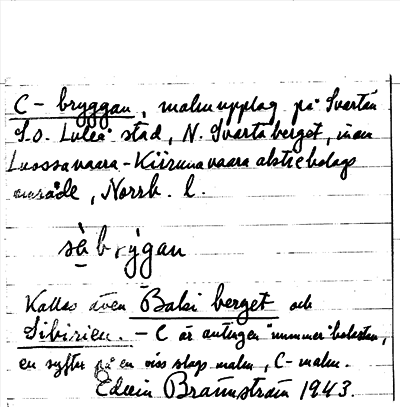 C-bryggan, malmupplag på Svartön
S.o. Luleå stad, N. Svartöberget, inom
Luossavaara-Kiirunavaara aktiebolags
område, Norrb. l.
sè brỳgan
Kallas även Balsi berget och
Sibirien. - C är antingen nummer
en syftar på en viss slags malm, C-malm.
Edvin Brännström 1943.